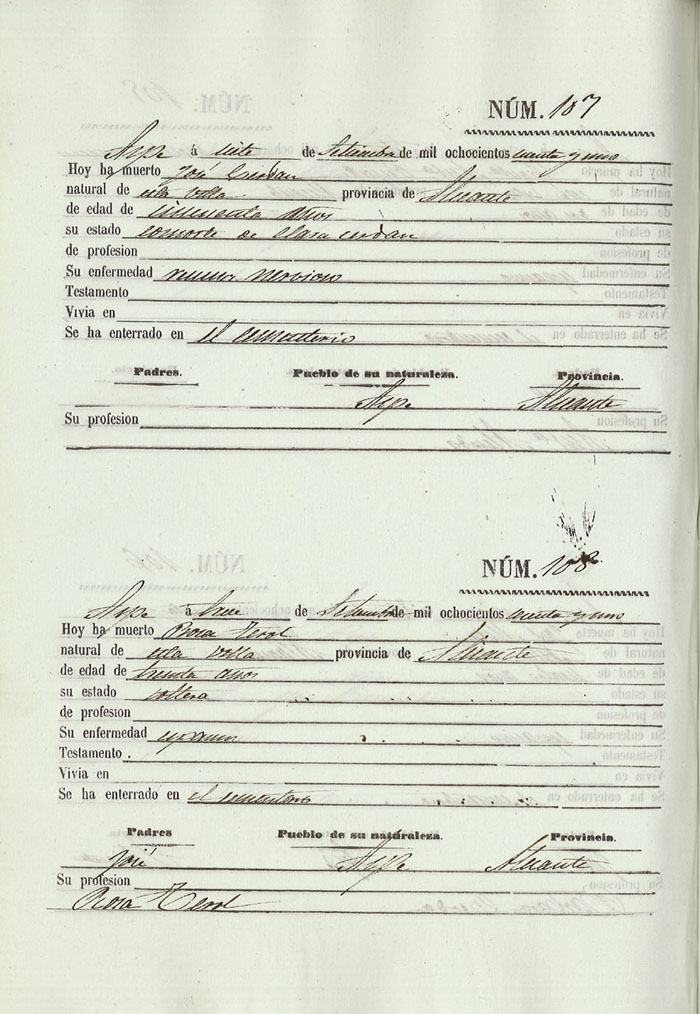 NÚM. 107
Aspe á siete de Setiembre de mil ochocientos cuenta y uno
Hoy ha muerto José Cerdan
natural de esta Villa provincia de Alicante
de edad de cincuenta años
su estado consorte de Clara Cerdan
de profesion
Su enfermedad
Testamento
Vivia en
Se ha enterrado en el cementerio
Padres. Pueblo de su naturaleza. Provincia.
Aspe Alicante
Su profesion
NÚM. 108
Aspe á trece de Setiembre de mil ochocientos cuenta y uno
Hoy ha muerto Rosa Terol
natural de esta Villa provincia de Alicante
de edad de treinta años
su estado soltera
de profesion
Su enfermedad
Testamento.
Vivia en
Se ha enterrado en el cementerio
Padres Pueblo de su naturaleza. Provincia.
José Aspe Alicante
Su profesion
Rosa Terol